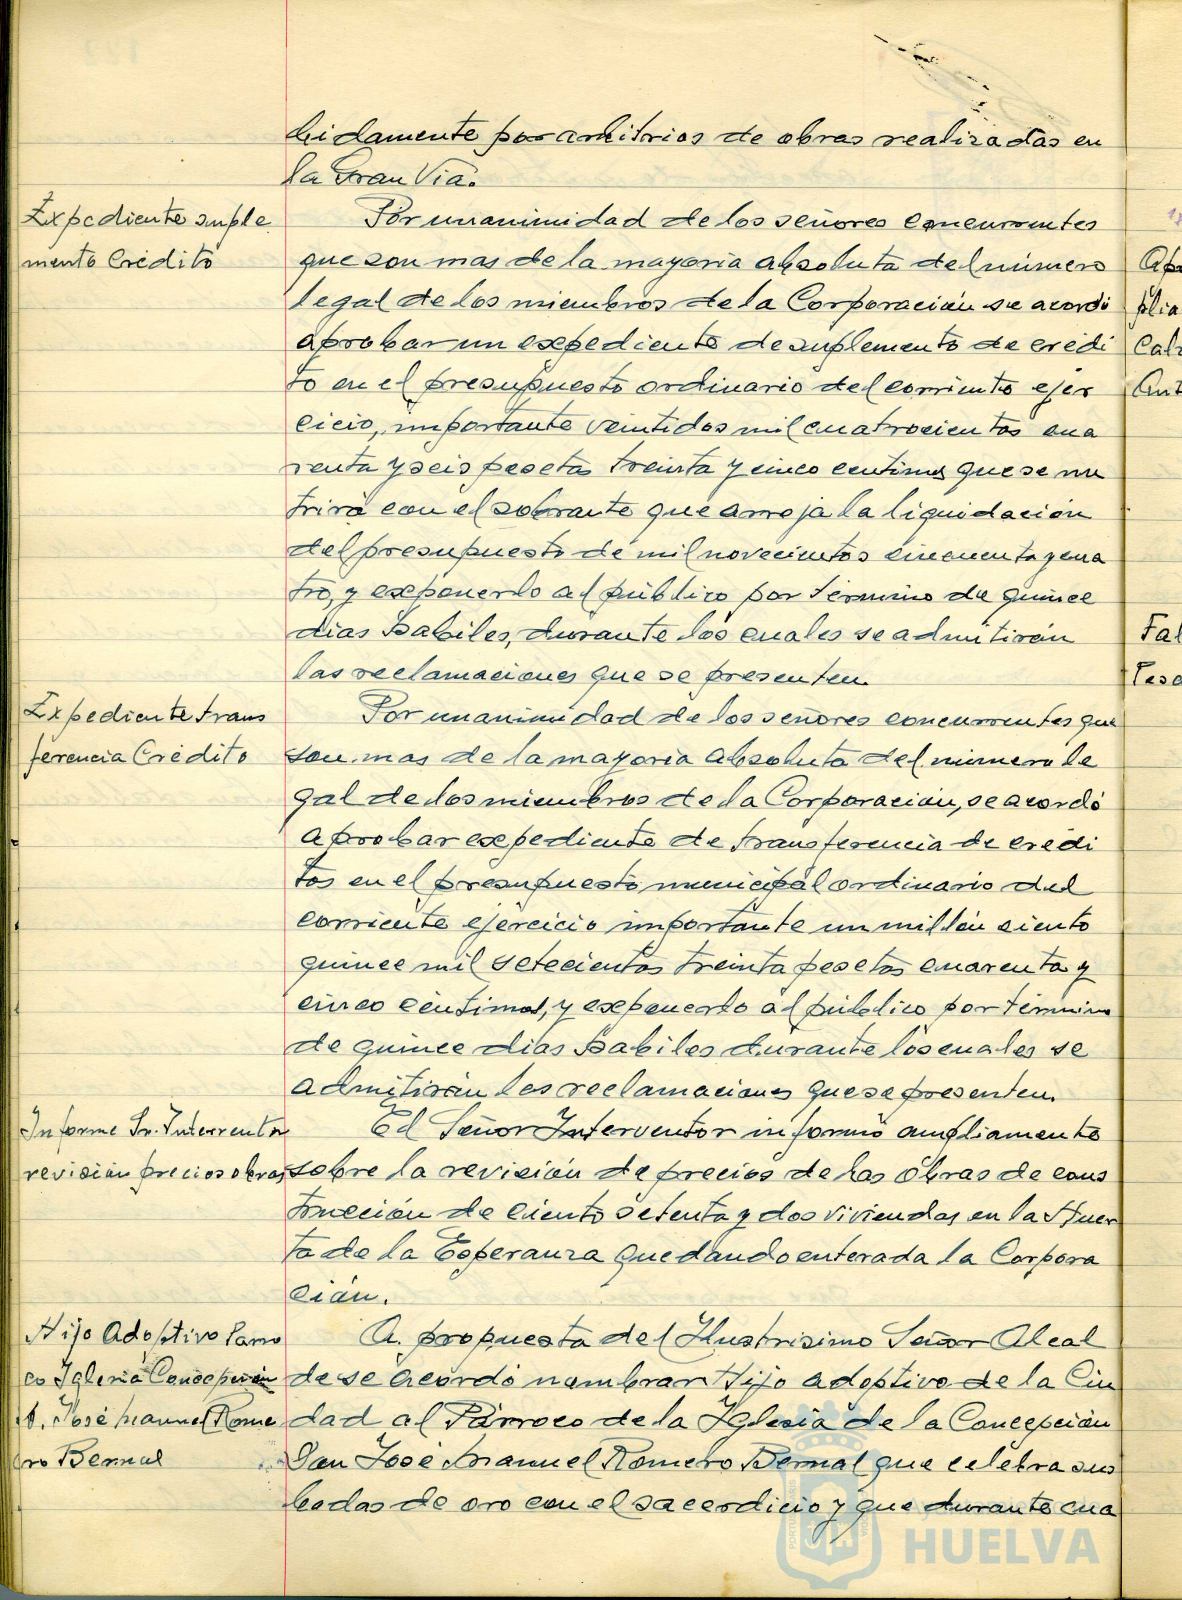 bidamente por arbitrios de obras realizadas en
la Gran Via.
Expediente suple
mento Crédito
Por unanimidad de los señores concurrentes
que son mas de la mayoria absoluta del número
legal de los miembros de la Corporación se acordó
aprobar un expediente de suplemento de crédi
to en el presupuesto ordinario del corriente ejer
cicio, importante veintidos mil cuatrocientas cua
renta y seis pesetas treinta y cinco centimos que se nu
trirá con el sobrante que arroja la liquidación
del presupuesto de mil novecientos cincuenta y cua
tro, y exponerlo al público por término de quince
dias habiles, durante los cuales se admitirán
las reclamaciones que se presenten.
Expediente trans
ferencia Crédito
Por unanimidad de los señores concurrentes que
son mas de la mayoria absoluta del número le
gal de los miembros de la Corporación, se acordó
aprobar expediente de transferencia de crédi
tos en el presupuesto municipal ordinario del
corriente ejercicio importante un millón ciento
quince mil setecientas treinta pesetas cuarenta y
cinco céntimos, y exponerlo al público por término
de quince dias habiles durante los cuales se
admitirán las reclamaciones que se presenten.
Informe Sr. Interventor
revisión precios obras
El Señor Interventor informó ampliamente
sobre la revisión de precios de las obras de cons
trucción de ciento setenta y dos viviendas en la Huer
ta de la Esperanza quedando enterada la Corpora
ción.
Hijo Adoptivo Parro
co Iglesia Concepción
D. José Manuel Rome
ro Bernal
A propuesta del Ilustrisimo Señor Alcal
de se acordó nombrar Hijo adoptivo de la Ciu
dad al Párroco de la Iglesia de la Concepción
Don José Manuel Romero Bernal que celebra sus
bodas de oro con el sacerdocio y que durante cua
HUELVA
Fal